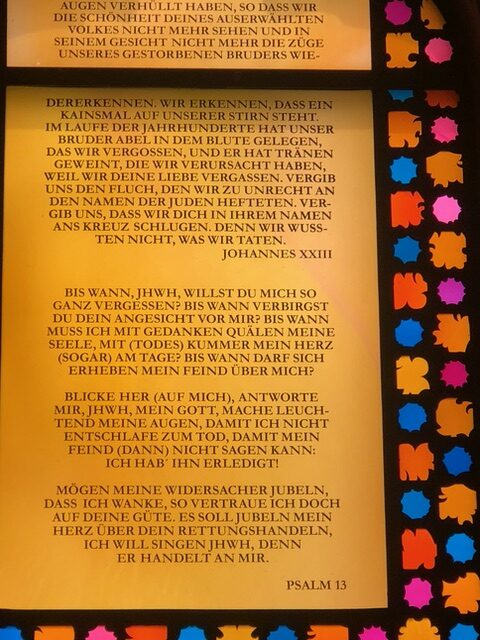 AUGEN VERHÜLLT HABEN, SO DASS WIR
DIE SCHÖNHEIT DEINES AUSERWÄHLTEN
VOLKES NICHT MEHR SEHEN UND IN
SEINEM GESICHT NICHT MEHR DIE ZÜGE
UNSERES GESTORBENEN BRUDERS WIE-
DERERKENNEN. WIR ERKENNEN, DASS EIN
KAINSMAL AUF UNSERER STIRN STEHT.
IM LAUFE DER JAHRHUNDERTE HAT UNSER
BRUDER ABEL IN DEM BLUTE GELEGEN,
DAS WIR VERGOSSEN, UND ER HAT TRÄNEN
GEWEINT, DIE WIR VERURSACHT HABEN,
WEIL WIR DEINE LIEBE VERGASSEN. VERGIB
UNS DEN FLUCH, DEN WIR ZU UNRECHT AN
DEN NAMEN DER JUDEN HEFTETEN. VER-
GIB UNS, DASS WIR DICH IN IHREM NAMEN
ANS KREUZ SCHLUGEN. DENN WIR WUSS-
TEN NICHT, WAS WIR TATEN.
JOHANNES XXIII
BIS WANN, JHWH, WILLST DU MICH SO
GANZ VERGESSEN? BIS WANN VERBIRGST
DU DEIN ANGESICHT VOR MIR? BIS WANN
MUSS ICH MIT GEDANKEN QUÄLEN MEINE
SEELE, MIT (TODES) KUMMER MEIN HERZ
(SOGAR) AM TAGE? BIS WANN DARF SICH
ERHEBEN MEIN FEIND ÜBER MICH?
BLICKE HER (AUF MICH), ANTWORTE
MIR, JHWH, MEIN GOTT, MACHE LEUCH-
TEND MEINE AUGEN, DAMIT ICH NICHT
ENTSCHLAFE ZUM TOD, DAMIT MEIN
FEIND (DANN) NICHT SAGEN KANN:
ICH HAB´ IHN ERLEDIGT!
MÖGEN MEINE WIDERSACHER JUBELN,
DASS ICH WANKE, SO VERTRAUE ICH DOCH
AUF DEINE GÜTE. ES SOLL JUBELN MEIN
HERZ ÜBER DEIN RETTUNGSHANDELN,
ICH WILL SINGEN JHWH, DENN
ER HANDELT AN MIR.
PSALM 13